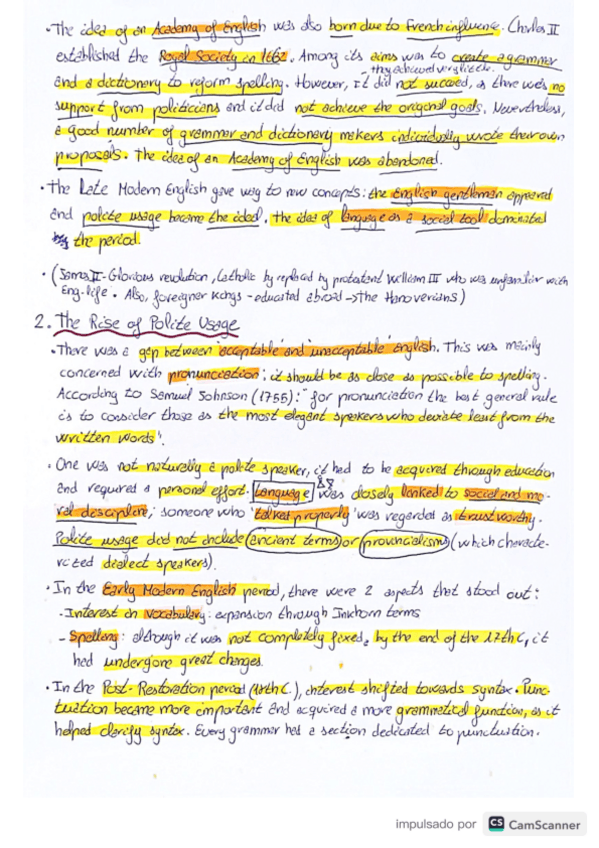 · The idea of an Academy of English was also born due to French influence. Charles II
established the Royal Society in 1662. Among its aims was to create a grammar
- they achieved very little.
and a dictionary to reform spelling. However, it did not succeed, as there was no
support from politicians and it did not achieve the original goals. Nevertheless,
a good number of grammar and dictionary makers individually wrote their own
proposals. The idea of an Academy of English was abandoned.
· The Late Modern English gave way to new concepts: the English gentleman appeared
and polite usage became the ideal. The idea of language as a social tool dominated
the period.
· (James II - Glorious revolution, Catholic by replaced by protestant William III who was unfamiliar with
Eng. life. Also, foreigner Kings - educated abroad -> the Hanoverians)
2. The Rise of Polite Usage
· There was a gap between 'acceptable' and 'unacceptable' English. This was mainly
concerned with pronunciation; it should be as close as possible to spelling.
According to Samuel Johnson (1755): "for pronunciation the best general rule
is to consider those as the most elegant speakers who deviate least from the
written words".
· One was not naturally a polite speaker, it had to be acquired through education
and required a personal effort. Language was closely linked to social and mo-
ral discipline; someone who 'talked properly' was regarded as trustworthy.
Polite usage did not include (ancient terms) or (provincialisms) (which characte-
rized dialect speakers).
· In the Early Modern English period, there were 2 aspects that stood out:
- Interest on Vocabulary: expansion through Inkhorn terms
- Spelling: although it was not completely fixed, by the end of the 17th C, it
had undergone great changes.
· In the Post-Restoration period (18th C.), interest shifted towards syntax. Punc-
tuation became more important and acquired a more grammatical function, as it
helped clarify syntax. Every grammar had a section dedicated to punctuation.
impulsado por CS CamScanner